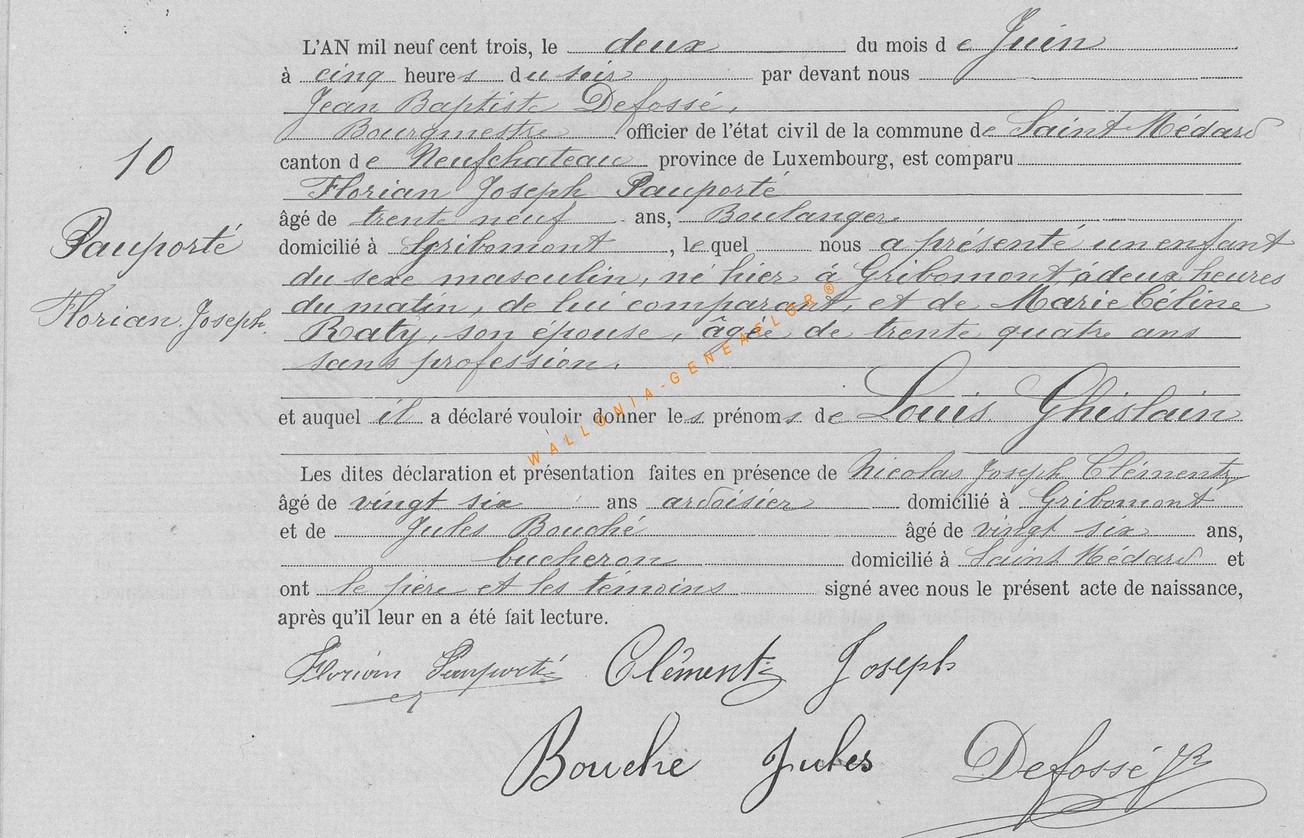 L'AN mil neuf cent trois, le deux du mois de Juin
à cinq heures du soir par devant nous
Jean Baptiste Defossé,
Bourgmestre officier de l'état civil de la commune de Saint-Médard
10
canton de Neufchateau province de Luxembourg, est comparu
Florian Joseph Pauporté
âgé de trente neuf ans, Boulanger.
Pauporté
domicilié à Gribomont, lequel nous a présenté un enfant
du sexe masculin, né hier à Gribomont, à deux heures
Florian Joseph
du matin, de lui comparant, et de Marie Céline
Raty, son épouse, âgée de trente quatre ans
sans profession.
et auquel il a déclaré vouloir donner les prénoms de Louis Ghislain
Les dites déclaration et présentation faites en présence de Nicolas Joseph Clémentz
âgé de vingt six ans ardoisier domicilié à Gribomont
et de Jules Bouché âgé de vingt six ans,
bucheron domicilié à Saint Médard et
ont le père et les témoins signé avec nous le présent acte de naissance,
après qu'il leur en a été fait lecture.
Florian Pauporté Clémentz Joseph
Bouché Jules Defossé JB
WALLONIA-GENEAFLOR®